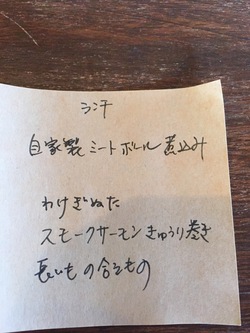 ランチ
自家製ミートボール煮込み
わけぎぬた
スモークサーモンきゅうり巻き
長いもの合えもの